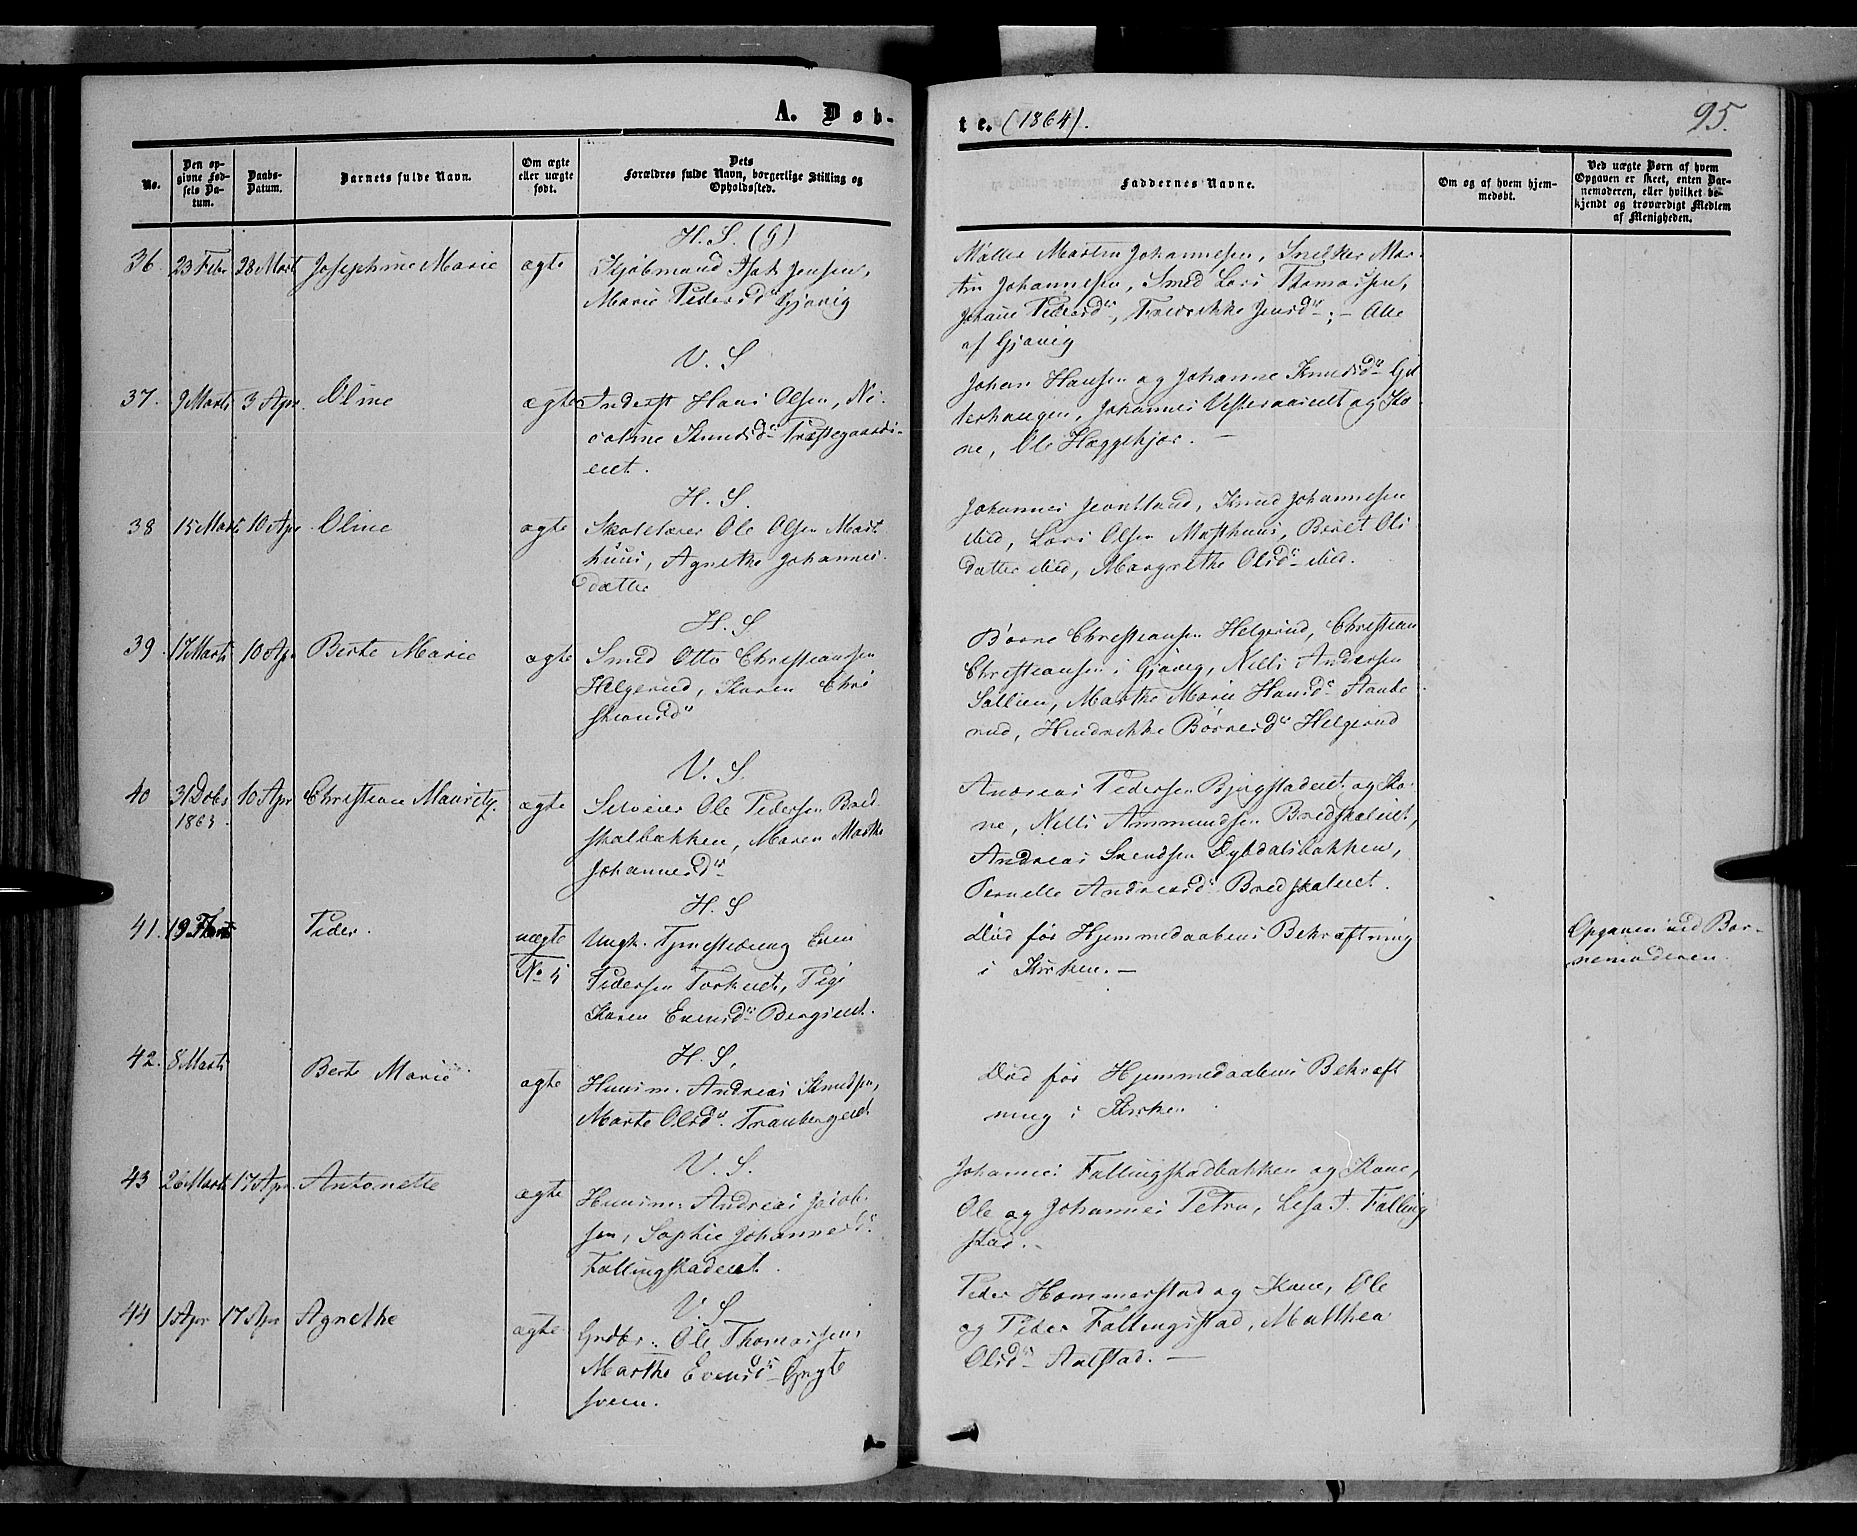 A. Døb-
te. (1864).
95.
No.
Den op-
givne Fød-
sels Da-
tum.
Daabs-
Datum.
Barnets fulde Navn.
Om ægte
eller uægte
født.
Dets
Forældres fulde Navn, borgerlige Stilling og
Opholdssted.
Faddernes Navne.
Om og af hvem hjem-
medøbt.
Ved uægte Børn af hvem
Opgaven er skeet, enten Bar-
nemoderen, eller hvilket be-
kjendt og troværdigt Medlem
af Menigheden.
H. S. (G)
36. 23 Febr 28 Marts Josephine Marie ægte Kjøbmand Isak Jensen,
Marie Pedersd Gjøvig
Møller Martin Johannesen, Snekker Mar-
tin Johannesen, Smed Lars Thomassen,
Johane Pedersd, Fredrikke Jensd; - Alle
af Gjøvig
V. S
37. 9 Marts 3 Apr. Oline ægte Inderst Hans Olsen, Ni-
coline Knudsd Præstegaards-
eiet.
Johan Hansen og Johanne Knudsd
Johannes og Ko-
ne, Ole Hæggehjør. -
H. S.
38 15 Marts 10 Apr Oline ægte Skolelærer Ole Olsen Mast-
huus, Agnethe Johannes-
datter
Johannes Knud Johannesen
ibid, Lars Olsen Masthuus, Beret Ols-
datter ibid, Margrethe Olsd ibid.
H. S
39. 17 Marts 10 Apr Berte Marie ægte Smed Otto Christiansen
Helgerud, Karen Chri-
stiansd
Børre Christiansen Helgerud, Christian
Christiansen i Gjøvig, Nills Andersen
Sollien, Marthe Marie Hansd Staube-
rud, Hendrikke Børresd Helgerud
V. S.
40 31 Dcbr 10 Apr Christian Mauritz. ægte Selveier Ole Pedersen Bred-
1863.
skalbakken, Maren Marthe
Johannesd
Andreas Pedersen Bjugstadeiet og Ko-
ne, Nills Ammundsen Bredskaleiet,
Andreas Svendsen Dybdalsbakken,
Pernelle Andreasd Bredskaleiet.
H. S
41. 19 Peder. uægte Ungk. Tjenestedreng Even
No 5 Pedersen Torkeiet, Pige
Karen Evensd Bergseiet.
Død før Hjemmedaabens Bekræftning
i Kirken. -
Opgaven ved Bar-
nemoderen.
H. S.
42. 8 Marts Berte Marie ægte Huusm. Andreas Knudsen,
Marte Olsd. Tranbergeiet
Død før Hjemmedaabens Bekræft-
ning i Kirken
V. S.
43 26 Marts 17 Apr Antonette ægte Huusm. Andreas Jacob-
sen, Sophie Johannesd.
Fallingstadeiet.
Johannes Fallingstadbakken og Kone,
Ole og Johannes Petra, Falling-
stad. -
V. S
44 1 Apr 17 Apr Agnethe ægte Gadbr. Ole Thomassen,
Marthe Evensd
sveen.
Peder Hammerstad og Kone, Ole
og Peder Fallingstad, Matthea
Olsd Aalstad. -